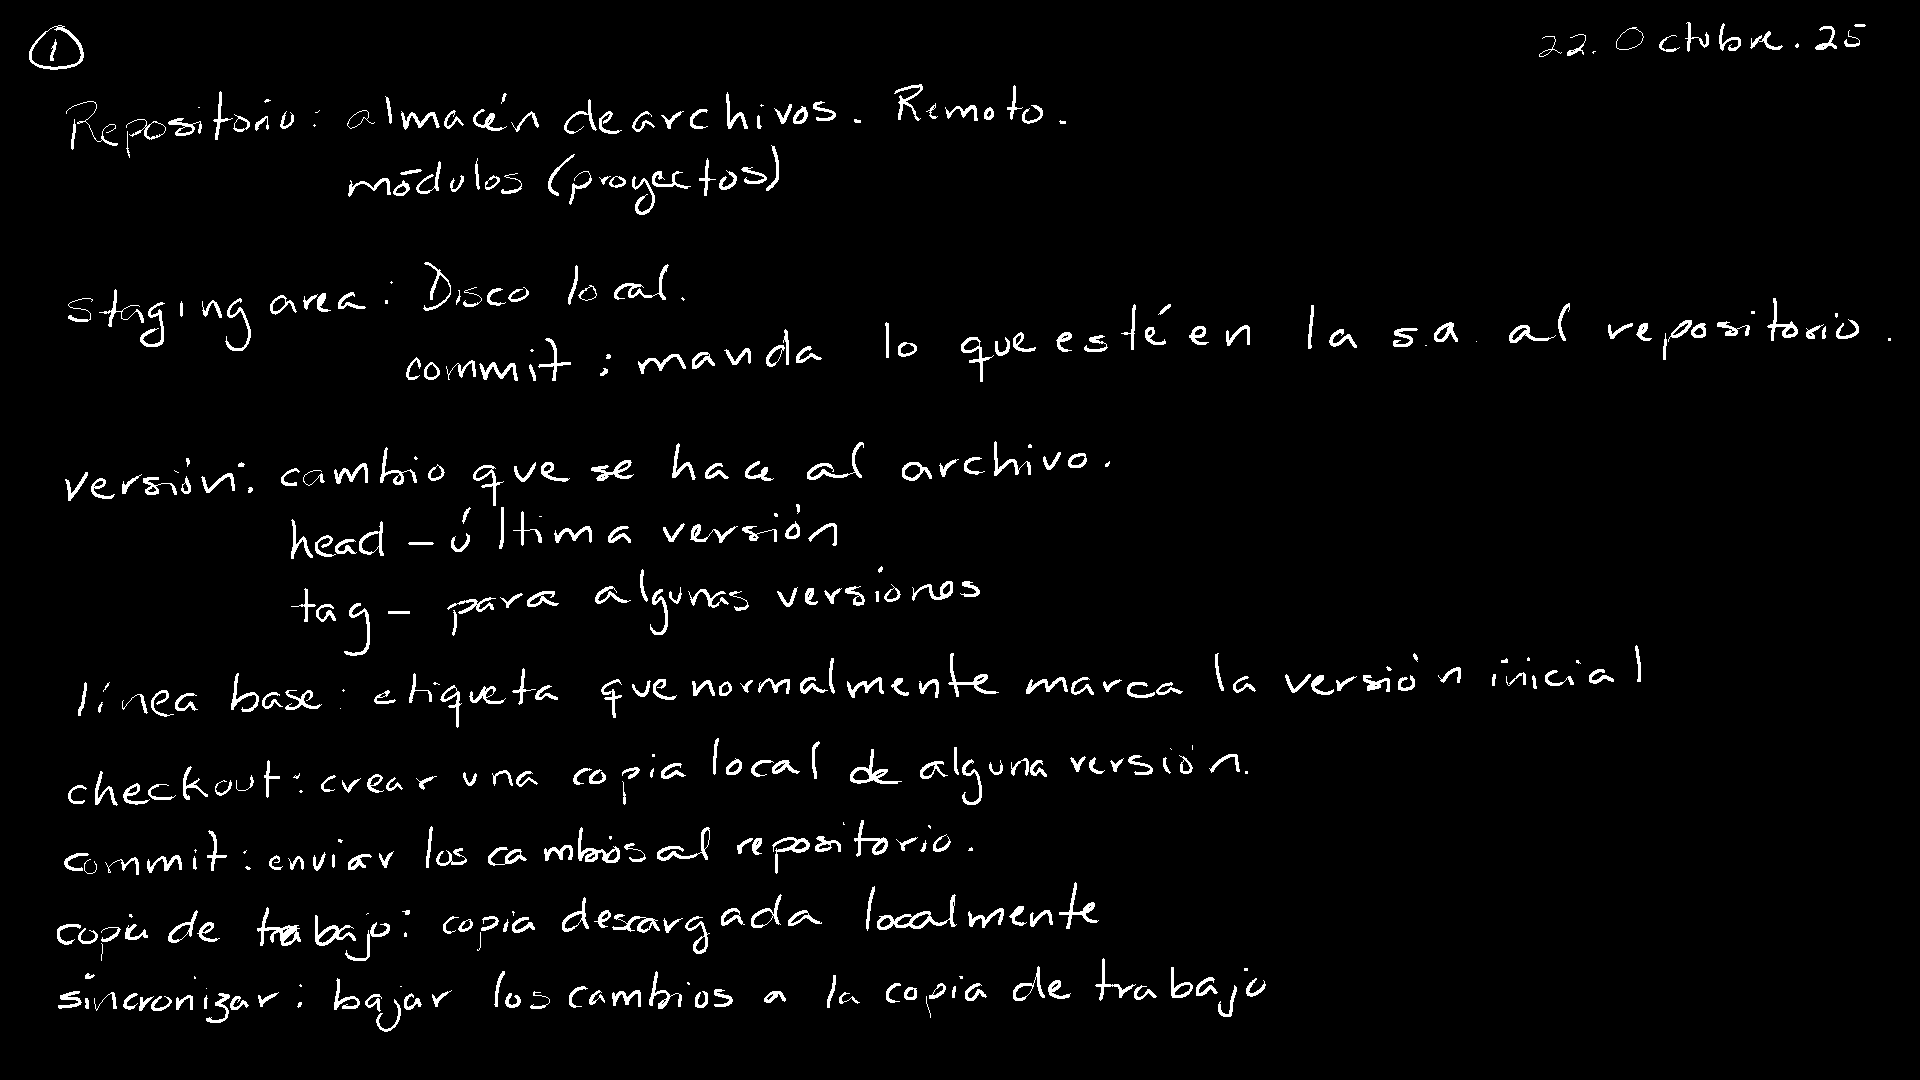 1
22. Octubre. 25
Repositorio: almacén de archivos. Remoto.
módulos (proyectos)
staging area: Disco local.
commit: manda lo que esté en la s.a. al repositorio.
versión: cambio que se hace al archivo.
head - última versión
tag - para algunas versiones
línea base: etiqueta que normalmente marca la versión inicial
checkout: crear una copia local de alguna versión.
commit: enviar los cambios al repositorio.
copia de trabajo: copia descargada localmente
sincronizar: bajar los cambios a la copia de trabajo